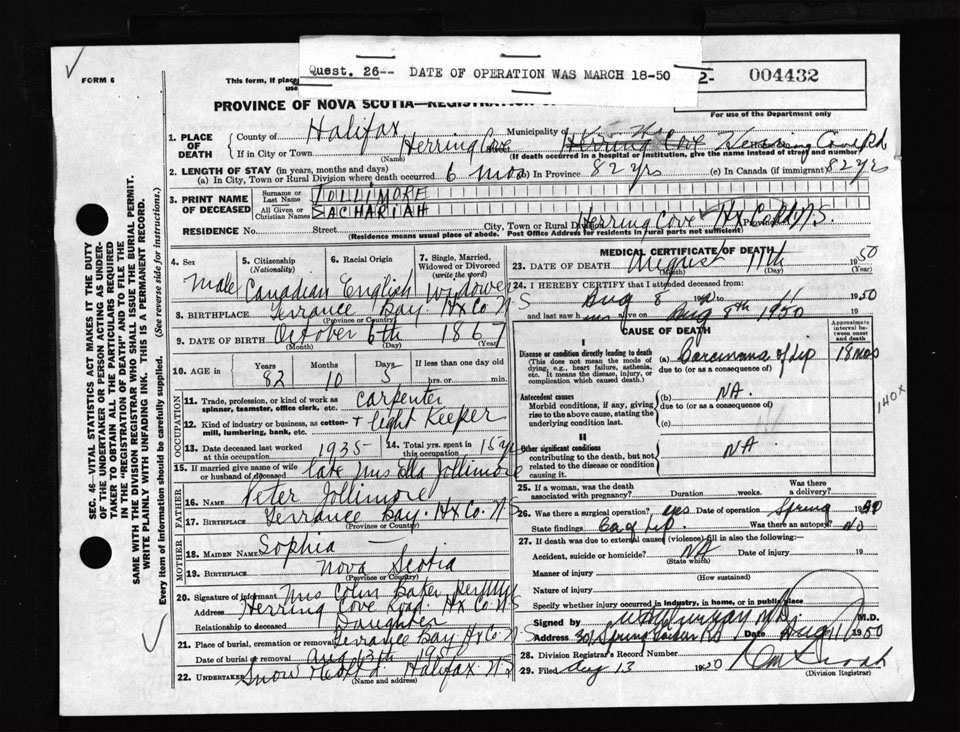 FORM 6
This form, if place
use
Quest. 26-- DATE OF OPERATION WAS MARCH 18-50
2- 004432
For use of the Department only
PROVINCE OF NOVA SCOTIA—REGISTRATION O
1. PLACE OF DEATH
County of Halifax Municipality of
If in City or Town Herring Cove Herring Cove Herring Cove Rd
(Name) (If death occurred in a hospital or institution, give the name instead of street and number)
2. LENGTH OF STAY (in years, months and days)
(a) In City, Town or Rural Division where death occurred 6 mos (b) In Province 82 yrs (c) In Canada (if immigrant) 82 yrs
3. PRINT NAME OF DECEASED
Surname or Last Name JOLLIMORE
All Given or Christian Names ZACHARIAH
RESIDENCE No. Street City, Town or Rural Division Herring Cove Hx Co. Province N.S.
(Residence means usual place of abode. Post Office Address for residents in rural parts not sufficient)
4. Sex Male
5. Citizenship (Nationality) Canadian
6. Racial Origin English
7. Single, Married, Widowed or Divorced (write the word) Widower
8. BIRTHPLACE Terrance Bay. Hx Co N S
(Province or Country)
9. DATE OF BIRTH October 6th 1867
(Month) (Day) (Year)
10. AGE in Years 82 Months 10 Days 5 If less than one day old hrs. or min.
OCCUPATION
11. Trade, profession, or kind of work as spinner, teamster, office clerk, etc. Carpenter
12. Kind of industry or business, as cotton-mill, lumbering, bank, etc. + light Keeper
13. Date deceased last worked at this occupation 1935
14. Total yrs. spent in this occupation 15 yrs
15. If married give name of wife or husband of deceased late Mrs Ella Jollimore
FATHER
16. NAME Peter Jollimore
17. BIRTHPLACE Terrance Bay. Hx Co. N S
(Province or Country)
MOTHER
18. MAIDEN NAME Sophia —
19. BIRTHPLACE Nova Scotia
(Province or Country)
20. Signature of informant Mrs Colin Baker
Address Herring Cove Road. Hx Co. N S
Relationship to deceased Daughter
21. Place of burial, cremation or removal Terrance Bay Hx Co N S
Date of burial or removal Aug 13th 1950
22. UNDERTAKER Snow & Co Ltd. Halifax N S
(Name and address)
MEDICAL CERTIFICATE OF DEATH
23. DATE OF DEATH August 11th 1950
(Month) (Day) (Year)
24. I HEREBY CERTIFY that I attended deceased from
Aug 8 to 11 1950
and last saw h alive on Aug 8th 1950
CAUSE OF DEATH
Approximate interval between onset and death
I
Disease or condition directly leading to death (a) Carcinoma of Lip 18 mos
(This does not mean the mode of dying, e.g., heart failure, asthenia, etc. It means the disease, injury, or complication which caused death.)
due to (or as a consequence of)
Antecedent causes (b) NA.
Morbid conditions, if any, giving rise to the above cause, stating the underlying condition last.
due to (or as a consequence of)
(c)
140x
II
Other significant conditions NA
contributing to the death, but not related to the disease or condition causing it.
25. If a woman, was the death associated with pregnancy? Duration weeks. Was there a delivery?
26. Was there a surgical operation? yes Date of operation Spring 1950
State findings Ca of Lip Was there an autopsy? No
27. If death was due to external causes (violence) fill in also the following:—
Accident, suicide or homicide? NA Date of injury 19
(State which)
Manner of injury
(How sustained)
Nature of injury
Specify whether injury occurred in industry, in home, or in public place
Signed by Murray M.D. M.D.
Address 301 Spring Garden Rd Date Aug 11 1950
28. Division Registrar's Record Number
29. Filed Aug 13 1950
(Division Registrar)
SEC. 46—VITAL STATISTICS ACT MAKES IT THE DUTY OF THE UNDERTAKER OR PERSON ACTING AS UNDERTAKER TO OBTAIN ALL THE PARTICULARS REQUIRED IN THE "REGISTRATION OF DEATH" AND TO FILE THE SAME WITH THE DIVISION REGISTRAR WHO SHALL ISSUE THE BURIAL PERMIT.
WRITE PLAINLY WITH UNFADING INK. THIS IS A PERMANENT RECORD.
Every item of information should be carefully supplied. (See reverse side for instructions.)